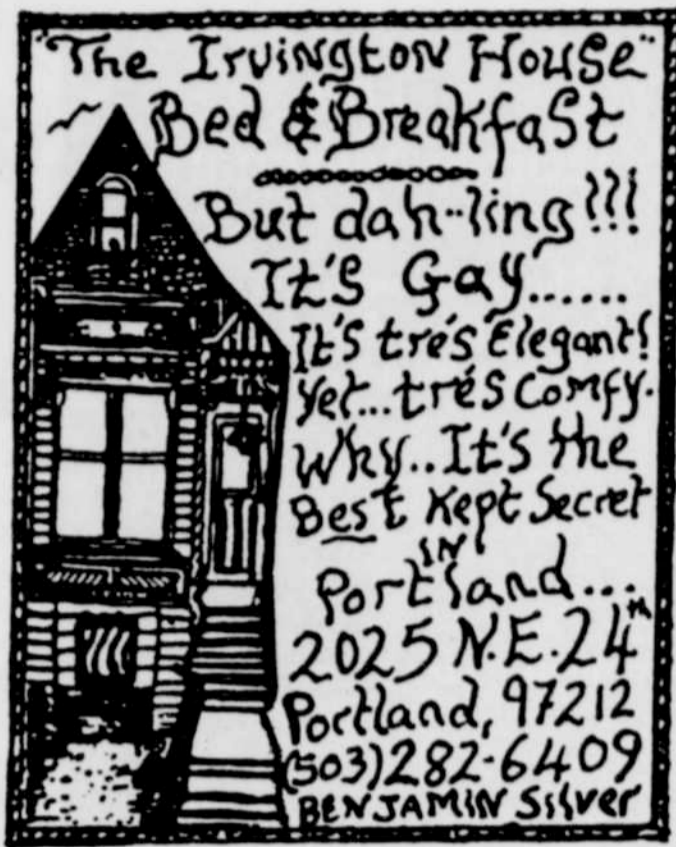 "The Irvington House"
Bed & Breakfast
But dah-ling!!!
It's Gay......
It's trés Elegant!
Yet...trés Comfy.
Why..It's the
Best Kept Secret
IN
Portland...
2025 N.E. 24th
Portland, 97212
(503) 282-6409
BENJAMIN Silver